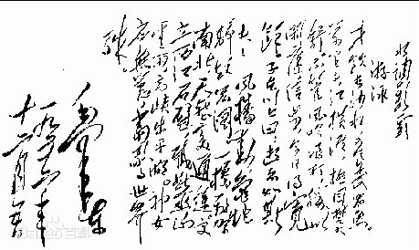 水调歌头
游泳
才饮长沙水 又食武昌鱼
万里长江横渡 极目楚天
舒 不管风吹浪打 胜似
闲庭信步 今日得宽
馀 子在川上曰 逝者如斯
夫 风樯动 龟蛇
静 起宏图 一桥飞架
南北 天堑变通途 更
立西江石壁 截断巫山
云雨 高峡出平湖 神女
应无恙 当惊世界
殊
毛泽东
一九五六年
十二月五日